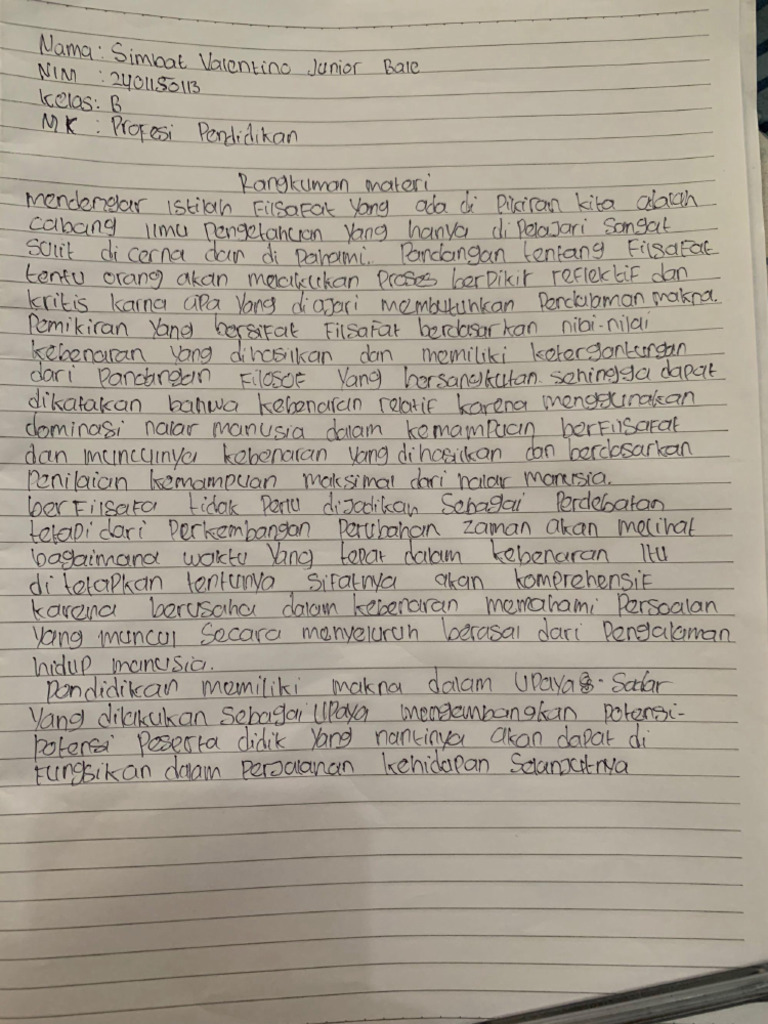 Nama: Simbat Valentino Junior Bale
NIM : 2401150113
Kelas: B
MK : Profesi Pendidikan
Rangkuman materi
mendengar istilah Filsafat yang ada di Pikiran kita adalah
cabang ilmu pengetahuan yang hanya di pelajari sangat
sulit di cerna dan di pahami. Pandangan tentang Filsafat
tentu orang akan melakukan proses berpikir reflektif dan
kritis karna apa yang di ajari membutuhkan Pendalaman makna.
Pemikiran yang bersifat Filsafat berdasarkan nilai-nilai
kebenaran yang dihasilkan dan memiliki ketergantungan
dari Pandangan Filosof yang bersangkutan. sehingga dapat
dikatakan bahwa kebenaran relatif karena menggunakan
dominasi nalar manusia dalam kemampuan berfilsafat
dan munculnya kebenaran yang dihasilkan dan berdasarkan
Penilaian kemampuan maksimal dari nalar manusia.
berfilsafa tidak Perlu dijadikan Sebagai Perdebatan
tetapi dari Perkembangan Perubahan zaman akan melihat
bagaimana waktu yang tepat dalam kebenaran itu
di tetapkan tentunya sifatnya akan komprehensif
karena berusaha dalam kebenaran memahami Persoalan
yang muncul Secara menyeluruh berasal dari Pengalaman
hidup manusia.
Pendidikan memiliki makna dalam upaya - Sadar
yang dilakukan sebagai upaya mengembangkan potensi-
potensi Peserta didik yang nantinya akan dapat di
fungsikan dalam Perjalanan kehidupan Selanjutnya